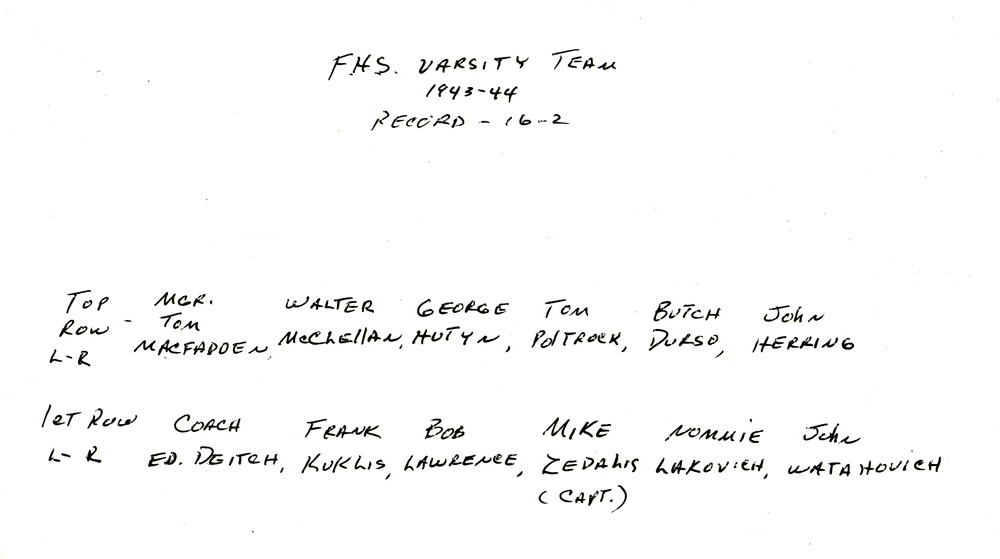 F.H.S. VARSITY TEAM
1943-44
RECORD - 16-2
TOP MGR. WALTER GEORGE TOM BUTCH JOHN
ROW - TOM
L-R MACFADDEN, McCLELLAN, HUTYN, POLTROCK, DURSO, HERRING
1ST ROW COACH FRANK BOB MIKE NOMMIE JOHN
L-R ED. DEITCH, KUKLIS, LAWRENCE, ZEDALIS LAKOVICH, WATAHOVICH
(CAPT.)